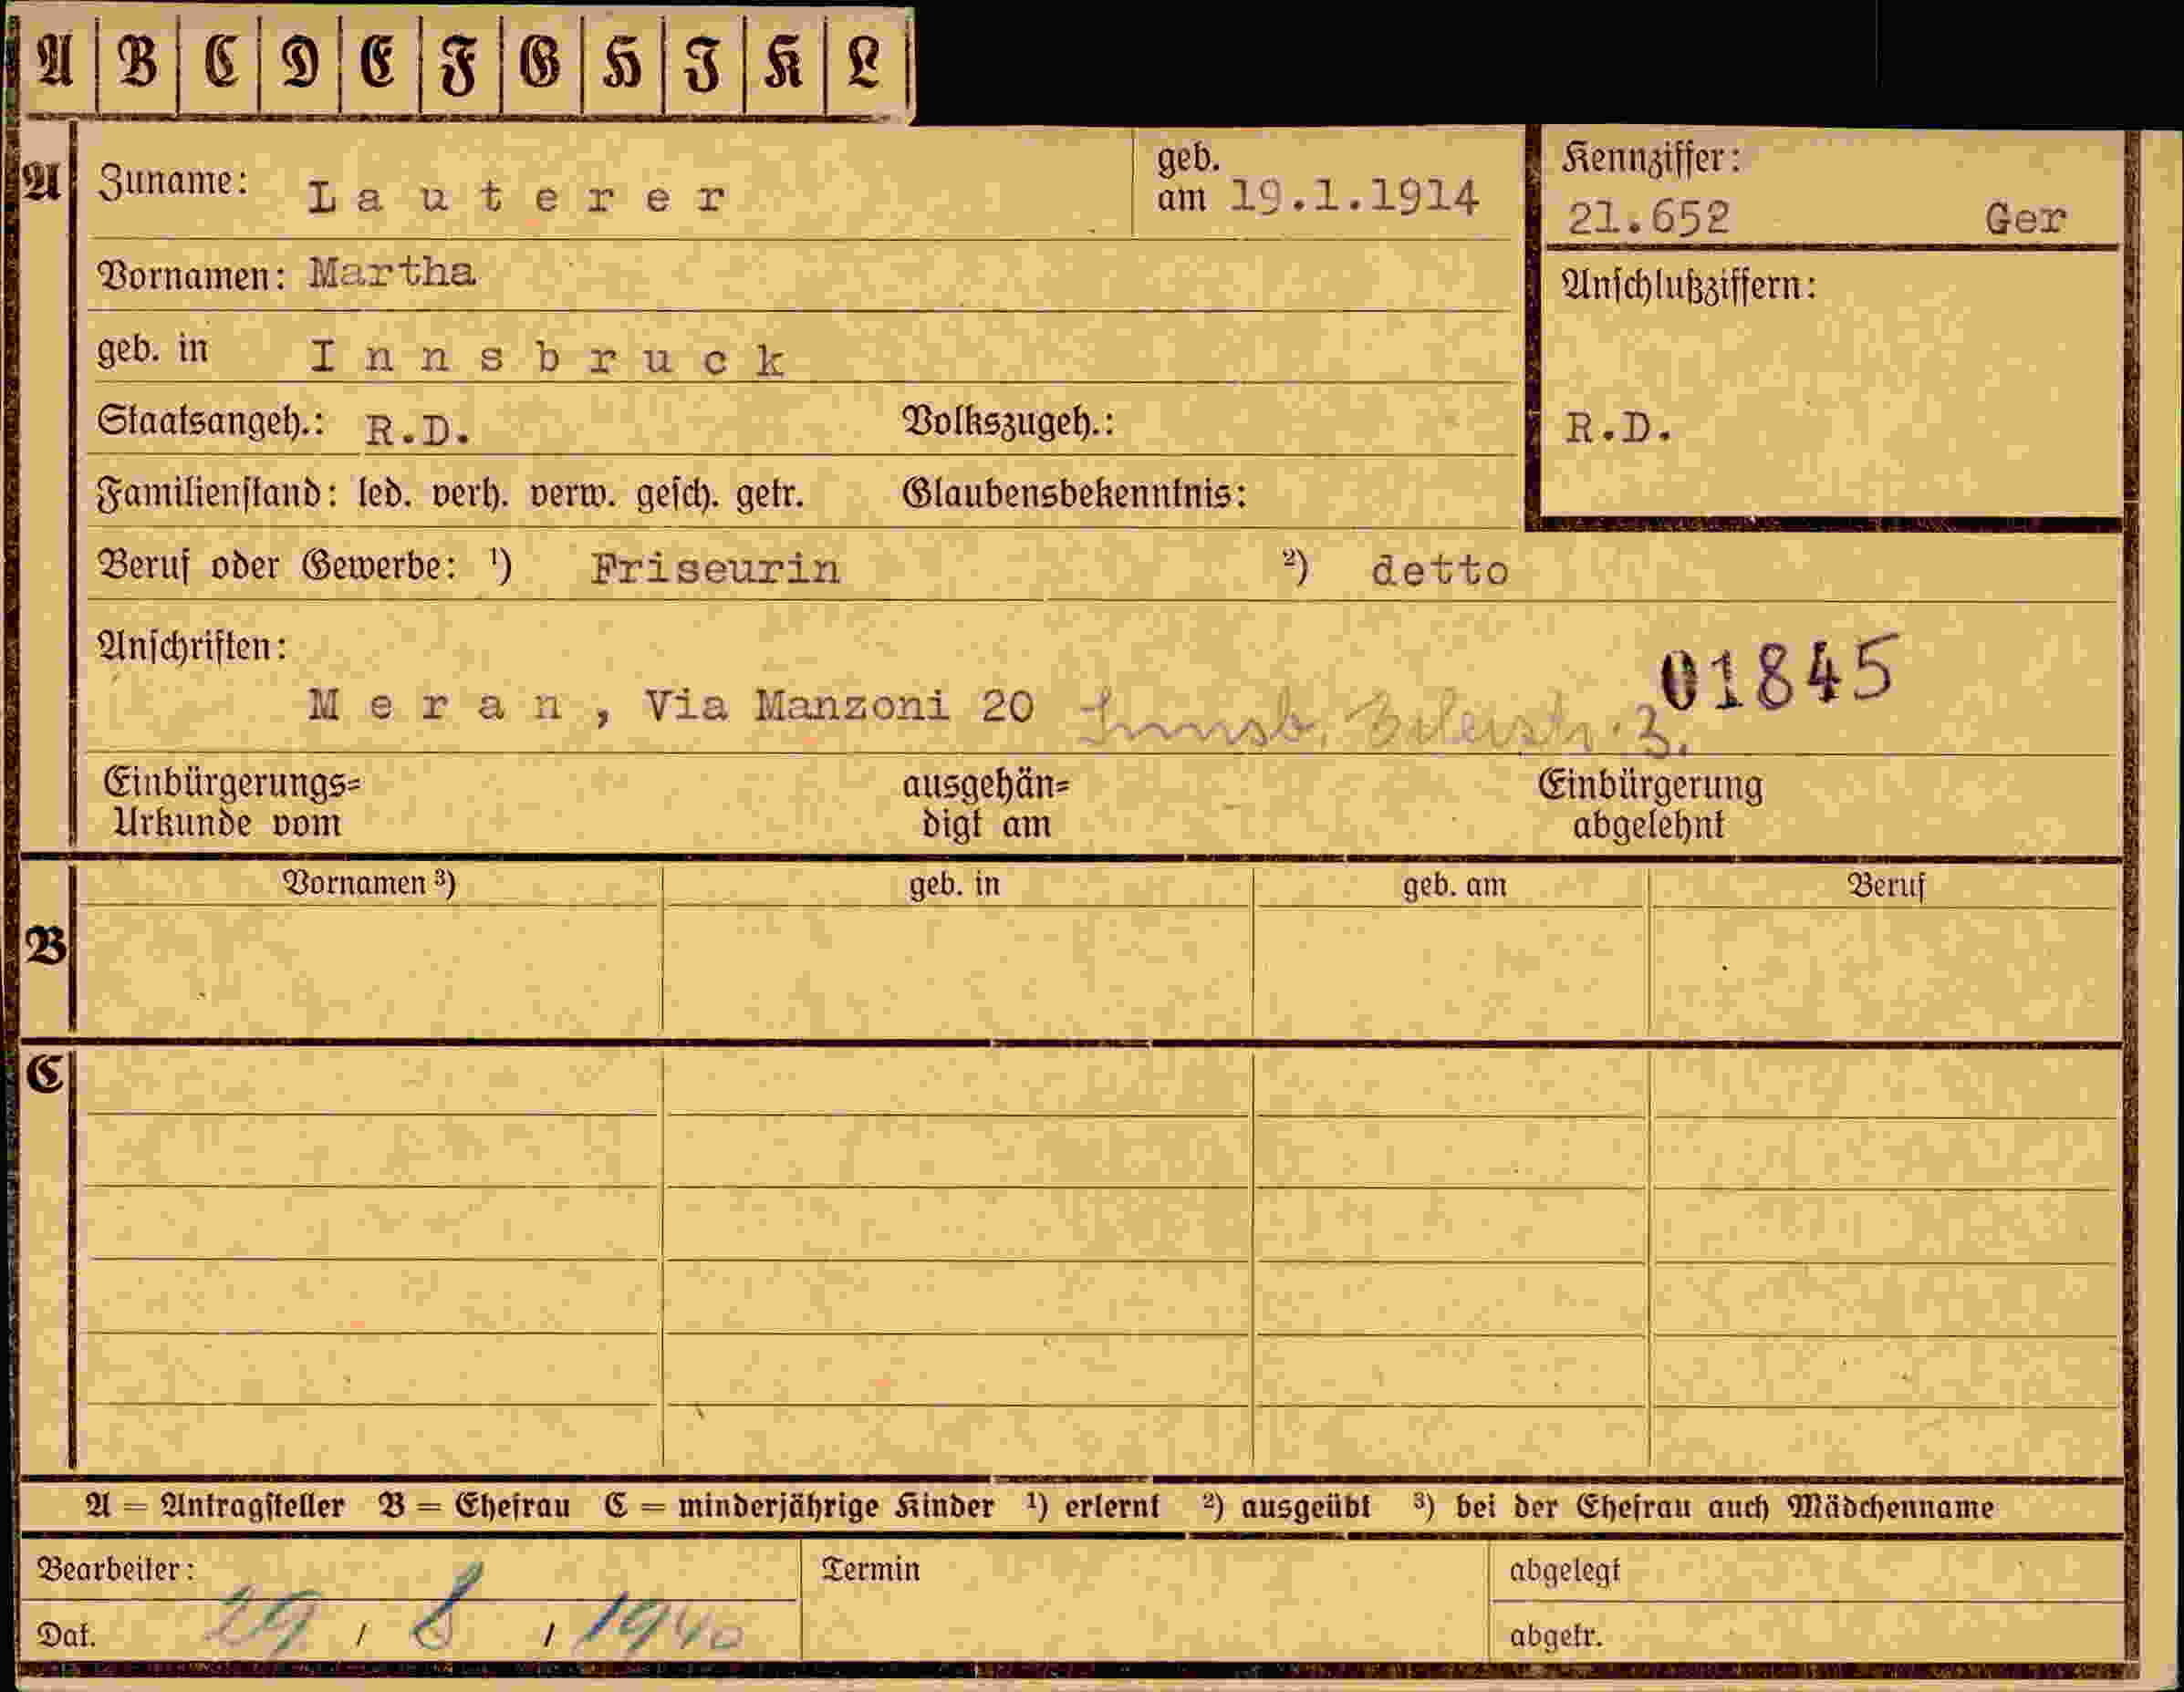 A B C D E F G H I K L
A Zuname: Lauterer geb. am 19.1.1914
Kennziffer: 21.652 Ger
Vornamen: Martha
Anschlußziffern:
geb. in Innsbruck
Staatsangeh.: R.D. Volkszugeh.:
R.D.
Familienstand: led. verh. verw. gesch. getr. Glaubensbekenntnis:
Beruf oder Gewerbe: ¹) Friseurin ²) detto
Anschriften:
01845
Meran, Via Manzoni 20 Innsb. 3.
Einbürgerungs= ausgehän= Einbürgerung
Urkunde vom digt am abgelehnt
Vornamen ³) geb. in geb. am Beruf
B
C
A = Antragsteller B = Ehefrau C = minderjährige Kinder ¹) erlernt ²) ausgeübt ³) bei der Ehefrau auch Mädchenname
Bearbeiter: Termin abgelegt
Dat. 29 / 8 / 1940 abgetr.